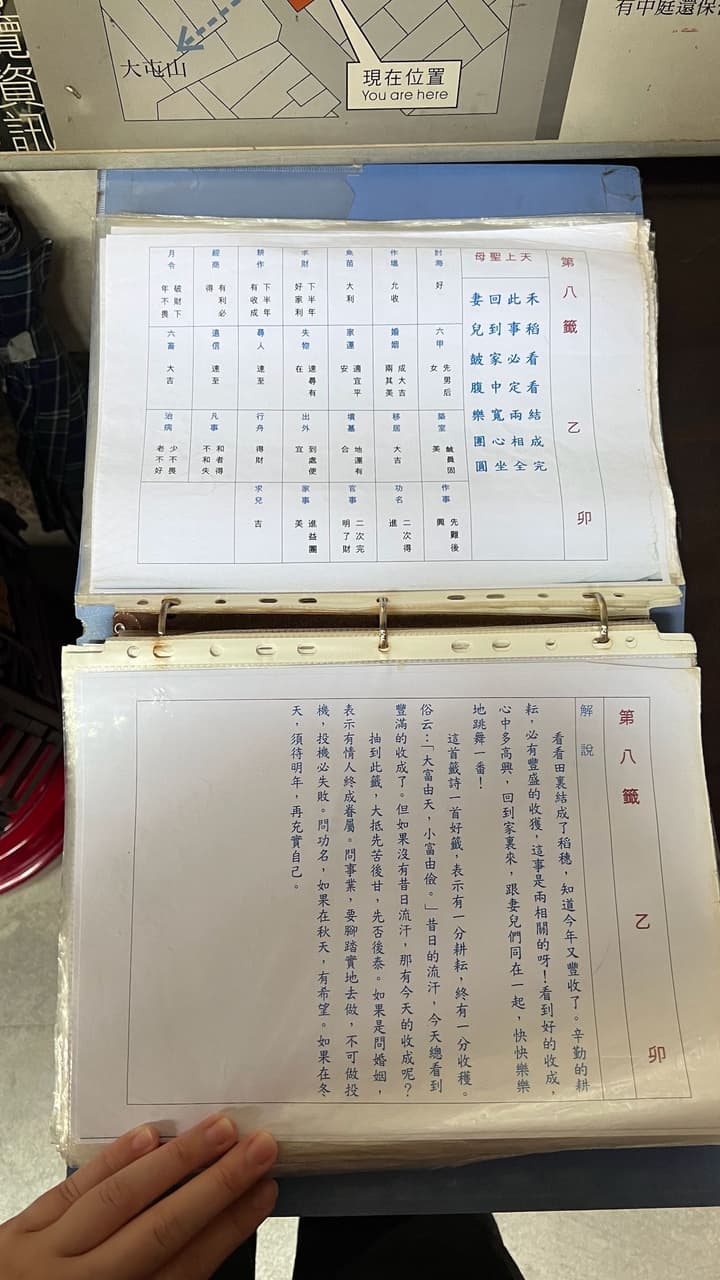 覽資訊
大屯山
現在位置
You are here
有中庭還保
第八籤 乙 卯
天上聖母
禾稻看看結成完
此事必定兩相全
回到家中寬心坐
妻兒皷腹樂團圓
討海
好
作塭
允收
魚苗
大利
求財
下半年
好家利
耕作
下半年
有收成
經商
有利必
得
月令
破財下
年不畏
六甲
先男后
女
婚姻
成大吉
兩其美
家運
適宜平
安
失物
速尋有
在
尋人
速至
遠信
速至
六畜
大吉
築室
鹹員固
美
移居
大吉
墳墓
地運有
合
出外
到處便
宜
行舟
得財
凡事
和者得
不和失
治病
少不畏
老不好
作事
先難後
興
功名
二次得
進
官事
二次完
明了財
家事
進益團
美
求兒
吉
第八籤 乙 卯
解說
看看田裏結成了稻穗，知道今年又豐收了。辛勤的耕
耘，必有豐盛的收獲，這事是兩相關的呀！看到好的收成，
心中多高興，回到家裏來，跟妻兒們同在一起，快快樂樂
地跳舞一番！
這首籤詩一首好籤，表示有一分耕耘，終有一分收穫。
俗云：「大富由天，小富由儉。」昔日的流汗，今天總看到
豐滿的收成了。但如果沒有昔日流汗，那有今天的收成呢？
抽到此籤，大抵先苦後甘，先否後泰。如果是問婚姻，
表示有情人終成眷屬。問事業，要腳踏實地去做，不可做投
機，投機必失敗。問功名，如果在秋天，有希望。如果在冬
天，須待明年，再充實自己。